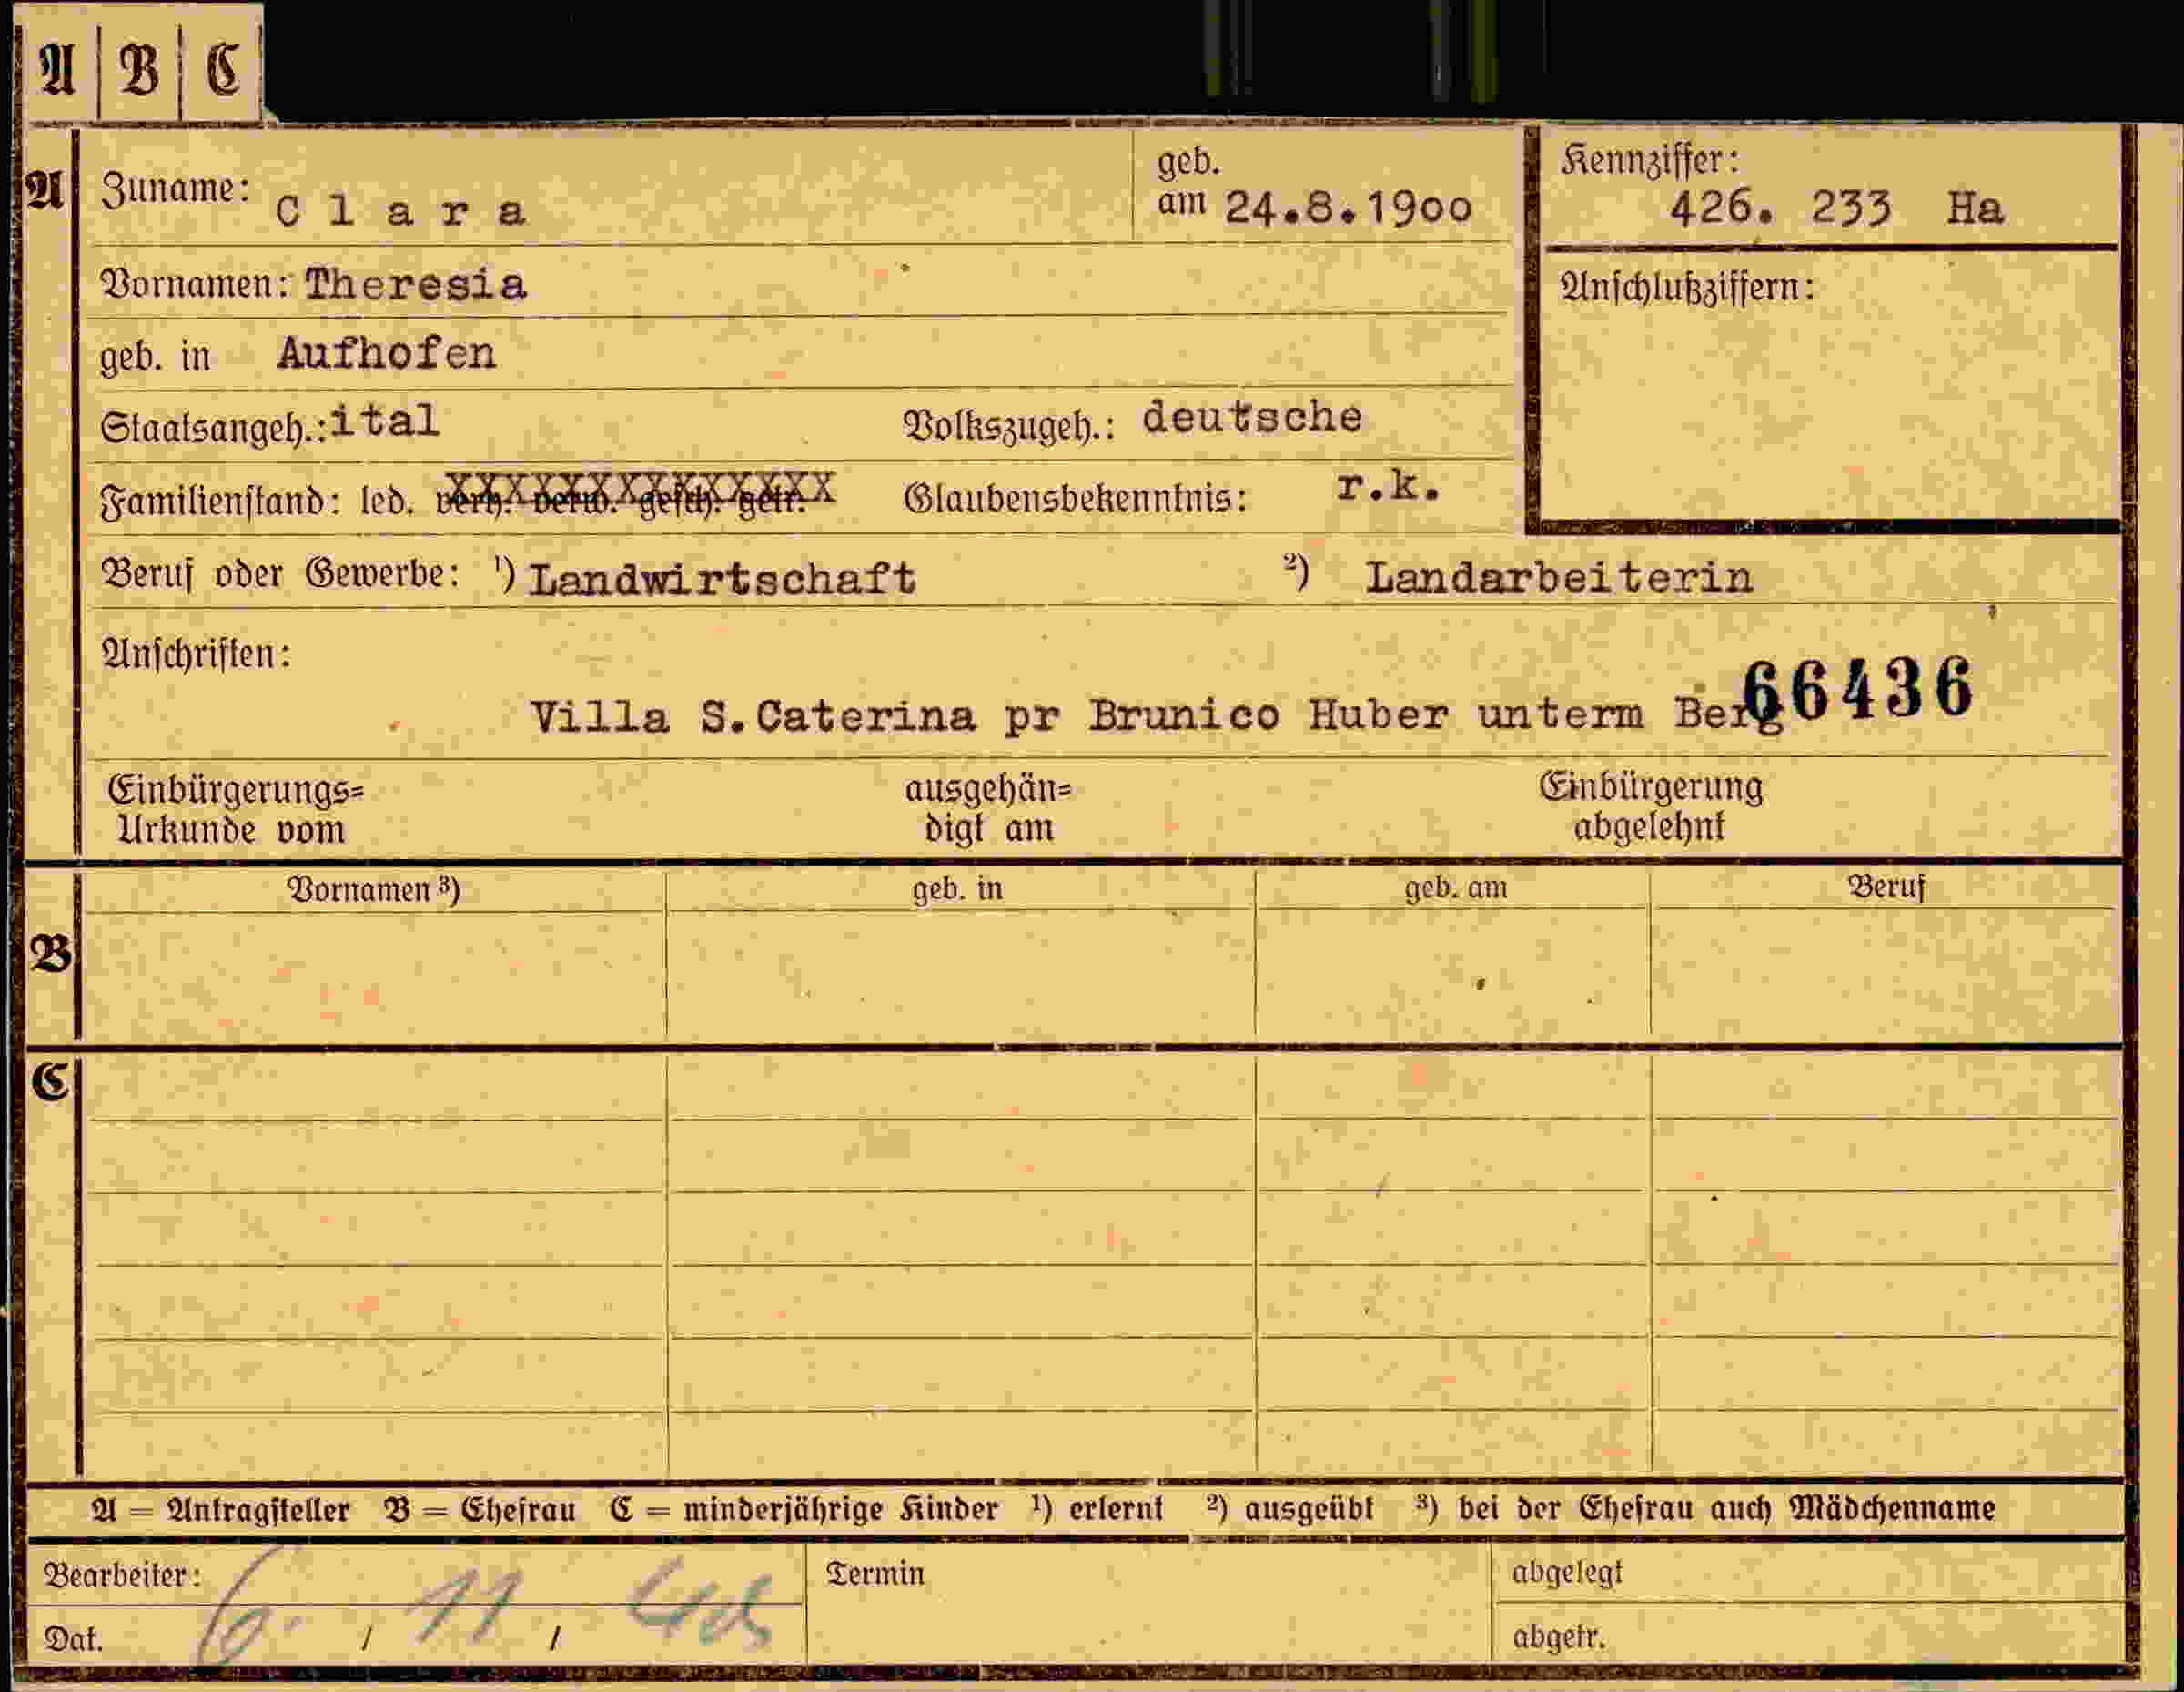 A B C
A Zuname: Clara geb. am 24.8.1900 Kennziffer: 426. 233 Ha
Vornamen: Theresia Anschlußziffern:
geb. in Aufhofen
Staatsangeh.: ital Volkszugeh.: deutsche
Familienstand: led. verh. verw. gesch. getr. Glaubensbekenntnis: r.k.
Beruf oder Gewerbe: ¹) Landwirtschaft ²) Landarbeiterin
Anschriften:
Villa S.Caterina pr Brunico Huber unterm Berg 66436
Einbürgerungs= ausgehän= Einbürgerung
Urkunde vom digt am abgelehnt
Vornamen ³) geb. in geb. am Beruf
B
C
A = Antragsteller B = Ehefrau C = minderjährige Kinder ¹) erlernt ²) ausgeübt ³) bei der Ehefrau auch Mädchenname
Bearbeiter: Termin abgelegt
Dat. 6. / 11 / abgetr.